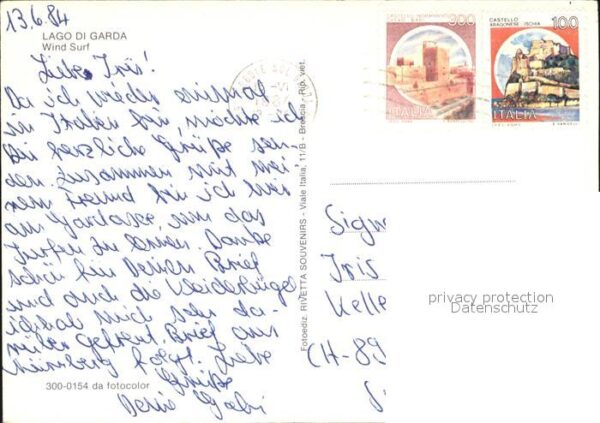 13.6.84
LAGO DI GARDA
Wind Surf
Liebe Iris!
Da ich wieder einmal
in Italien bin, möchte ich
Dir herzliche Grüße sen-
den. Zusammen mit mei-
nem Freund bin ich hier
am Gardasee, um das
Surfen zu lernen. Danke
schön für Deinen Brief
und auch die Kleiderbügel
ich hab mich sehr da-
rüber gefreut. Brief aus
Nürnberg folgt. Liebe
Grüße
Deine Gabi
300-0154 da fotocolor
Fotoediz. RIVETTA SOUVENIRS - Viale Italia, 11/B - Brescia - Rip. viet.
CASTELLO NORMANNO
300
ITALIA
CASTELLO
ARAGONESE ISCHIA
100
ITALIA
Sign
Iris
Kelle
CH-89
privacy protection
Datenschutz